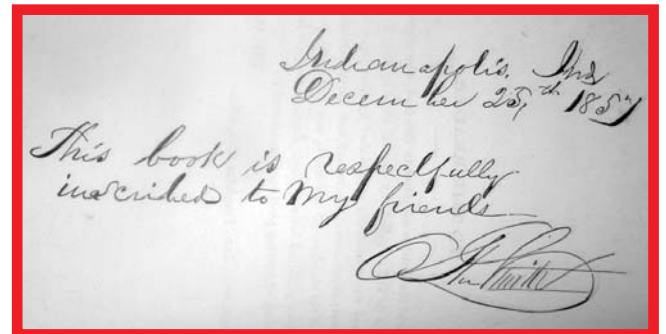 Indianapolis, Ind
December 25,th 1857
This book is respectfully
inscribed to my friends
Smith